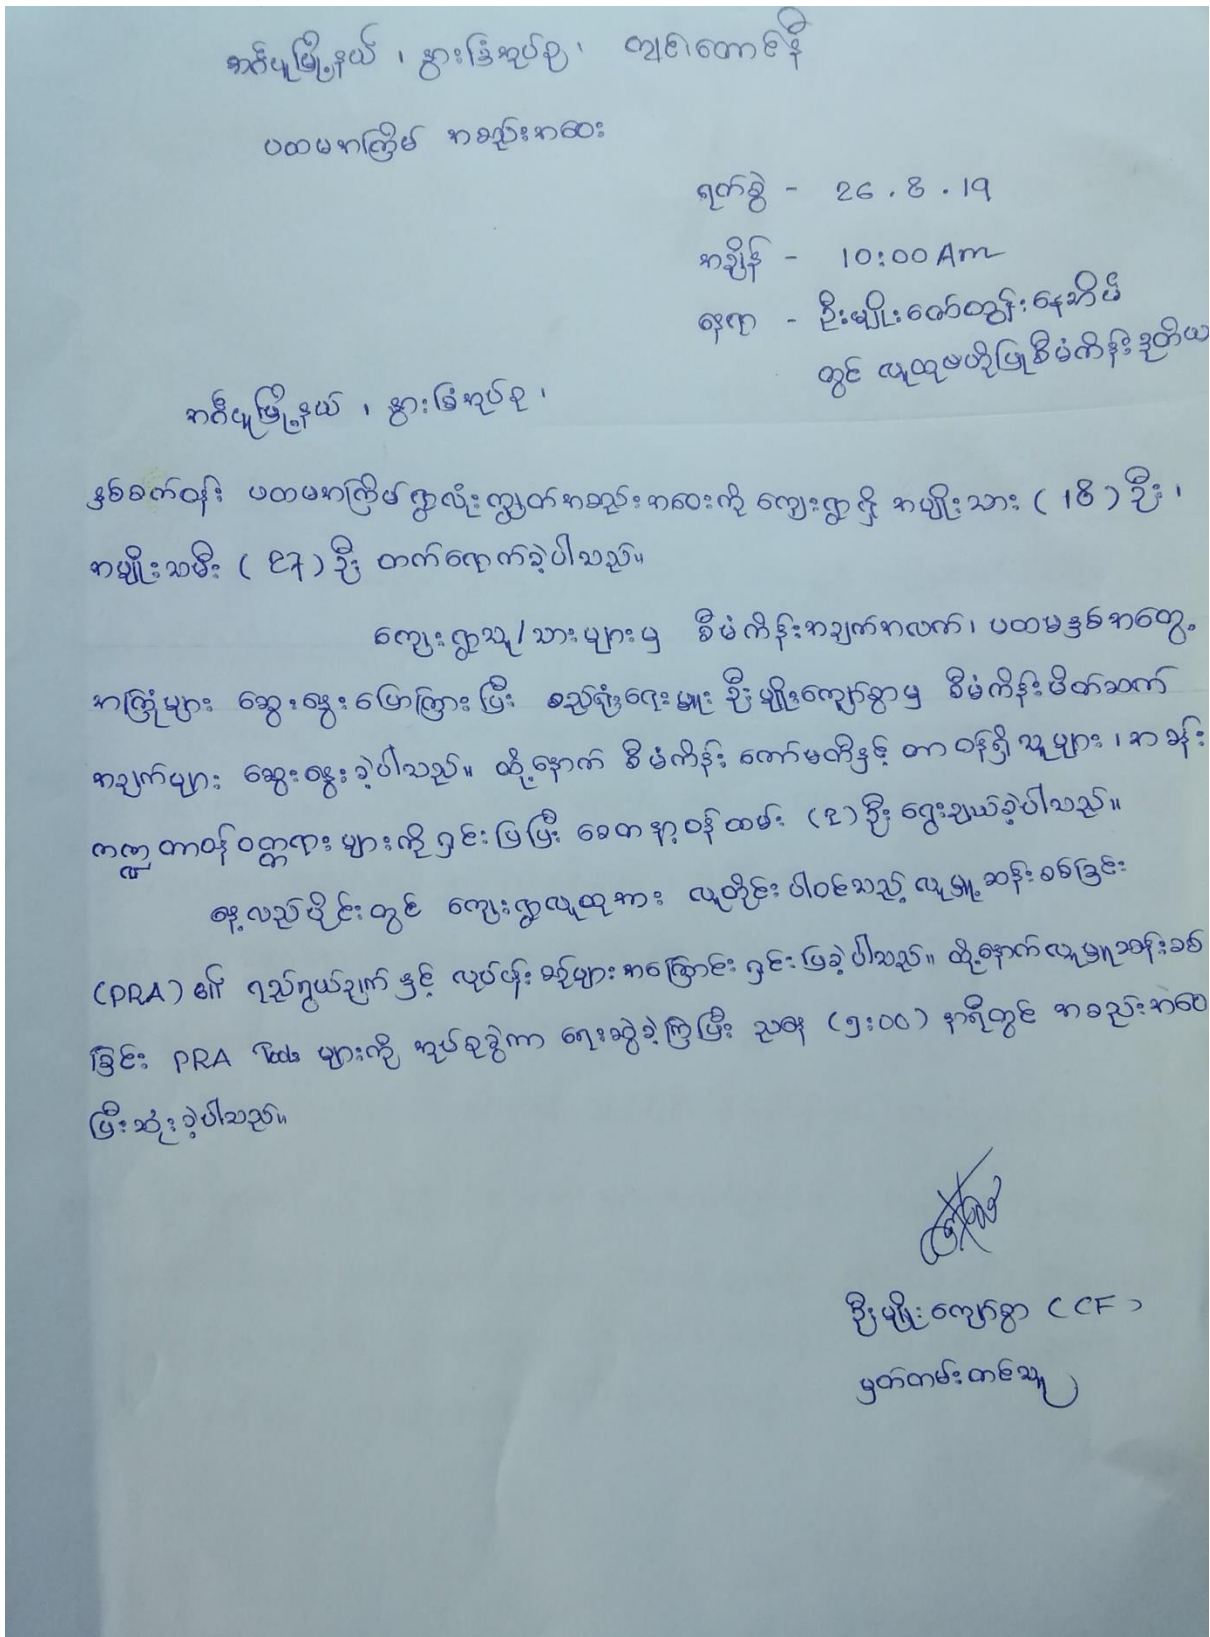 အင်္ဂပူမြို့နယ် ၊ နွားခြံအုပ်စု ၊ ကျင်းတောင်နီ
ပထမအကြိမ် အစည်းအဝေး
ရက်စွဲ - 26 . 8 . 19
အချိန် - 10:00 Am
နေရာ - ဦးမျိုးဇော်ထွန်းနေအိမ်
တွင် လူထုဗဟိုပြုစီမံကိန်းဒုတိယ
အင်္ဂပူမြို့နယ် ၊ နွားခြံအုပ်စု ၊
နှစ်စက်ဝန်း ပထမအကြိမ်ရွာလုံးကျွတ်အစည်းအဝေးကို ကျေးရွာရှိ အမျိုးသား ( 18 ) ဦး ၊
အမျိုးသမီး ( 27 ) ဦး တက်ရောက်ခဲ့ပါသည်။
ကျေးရွာသူ/သားများမှ စီမံကိန်းအချက်အလက်၊ ပထမနှစ်အတွေ့
အကြုံများ ဆွေးနွေးပြောကြားပြီး စည်းရုံးရေးမှူး ဦးမျိုးကျော်စွာမှ စီမံကိန်းမိတ်ဆက်
အချက်များ ဆွေးနွေးခဲ့ပါသည်။ ထို့နောက် စီမံကိန်း ကော်မတီနှင့် တာဝန်ရှိသူများ ၊ အခန်း
ကဏ္ဍ တာဝန်ဝတ္တရားများကို ရှင်းပြပြီး စေတနာ့ဝန်ထမ်း (2) ဦး ရွေးချယ်ခဲ့ပါသည်။
နေ့လည်ပိုင်းတွင် ကျေးရွာလူထုအား လူတိုင်းပါဝင်သည့် လူမှုဆန်းစစ်ခြင်း
(PRA) ၏ ရည်ရွယ်ချက် နှင့် လုပ်ငန်းစဉ်များအကြောင်း ရှင်းပြခဲ့ပါသည်။ ထို့နောက်လူမှုဆန်းစစ်
ခြင်း PRA Tools များကို အုပ်စုခွဲကာ ရေးဆွဲခဲ့ကြပြီး ညနေ (၅:၀၀) နာရီတွင် အစည်းအဝေး
ပြီးဆုံးခဲ့ပါသည်။
ဦးမျိုးကျော်စွာ (CF)
မှတ်တမ်းတင်သူ